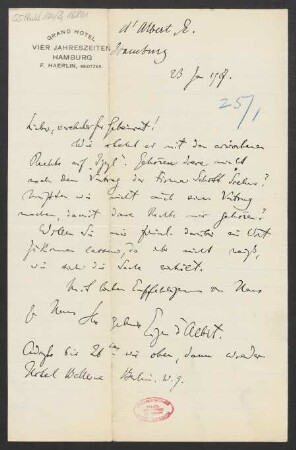 GRAND HOTEL
VIER JAHRESZEITEN
HAMBURG
F. HAERLIN, BESITZER.
d'Albert, E.
Hamburg
23 Jan
25/1
Lieber, verehrter Geheimrat!
Wie steht es mit den erworbenen
Rechte auf Gehören diese nicht
nach dem Vertrag der Firma Schott Soehne?
müssten wir nicht erst einen Vertrag
machen, damit diese Rechte mir gehören?
Wollen Sie mir darüber ein Wort
zukommen lassen, da ich nicht weiß,
wie sich die Sache verhält.
Mit besten Empfehlungen von Haus
zu Haus Ihr Eugen d'Albert.
bis 26 wie oben, dann wieder
Hotel Bellevue Berlin. W. 9.